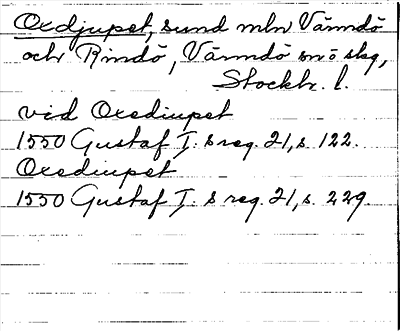 Oxdjupet, sund mln Värmdö
och Rindö, Värmdö snö skg,
Stockh. l.
vid Oxediupet
1550 Gustaf I:s reg. 21, s. 122.
Oxediupet
1550 Gustaf I:s reg. 21, s. 229.